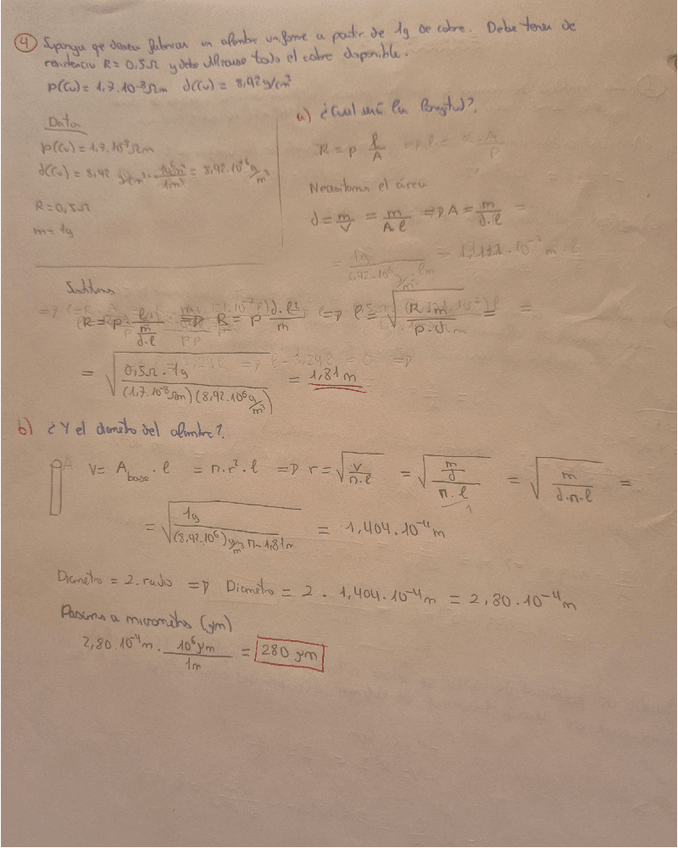 ④ Suponga que desea fabricar un alambre uniforme a partir de 1g de cobre. Debe tener de
resistencia R = 0,5Ω y debe utilizarse todo el cobre disponible.
ρ(Cu) = 1,7·10⁻⁸Ωm d(Cu) = 8,92g/cm³
Datos
ρ(Cu) = 1,7·10⁻⁸Ωm
d(Cu) = 8,92 = 8,92·10⁶ g/m³
R = 0,5Ω
m = 1g
a) ¿Cuál será la longitud?
R = ρ l/A
Necesitamos el área
d = m/V = m/A·l ⇒ A = m/d·l =
Sustituimos
R = ρ · l/(m/d·l) ⇒ R = ρ d·l²/m ⇒ l = √(R·m/ρ·d) =
= √(0,5Ω·1g/(1,7·10⁻⁸Ωm)(8,92·10⁶g/m³)) = 1,81m
b) ¿Y el diámetro del alambre?
A V = A base · l = π·r²·l ⇒ r = √(V/π·l) = √((m/d)/π·l) = √(m/d·π·l) =
= √(1g/(8,92·10⁶)g/m³·π·1,81m) = 1,404·10⁻⁴m
Diámetro = 2·radio ⇒ Diámetro = 2 · 1,404·10⁻⁴m = 2,80·10⁻⁴m
Pasamos a micrómetros (μm)
2,80·10⁻⁴m · 10⁶μm/1m = 280 μm